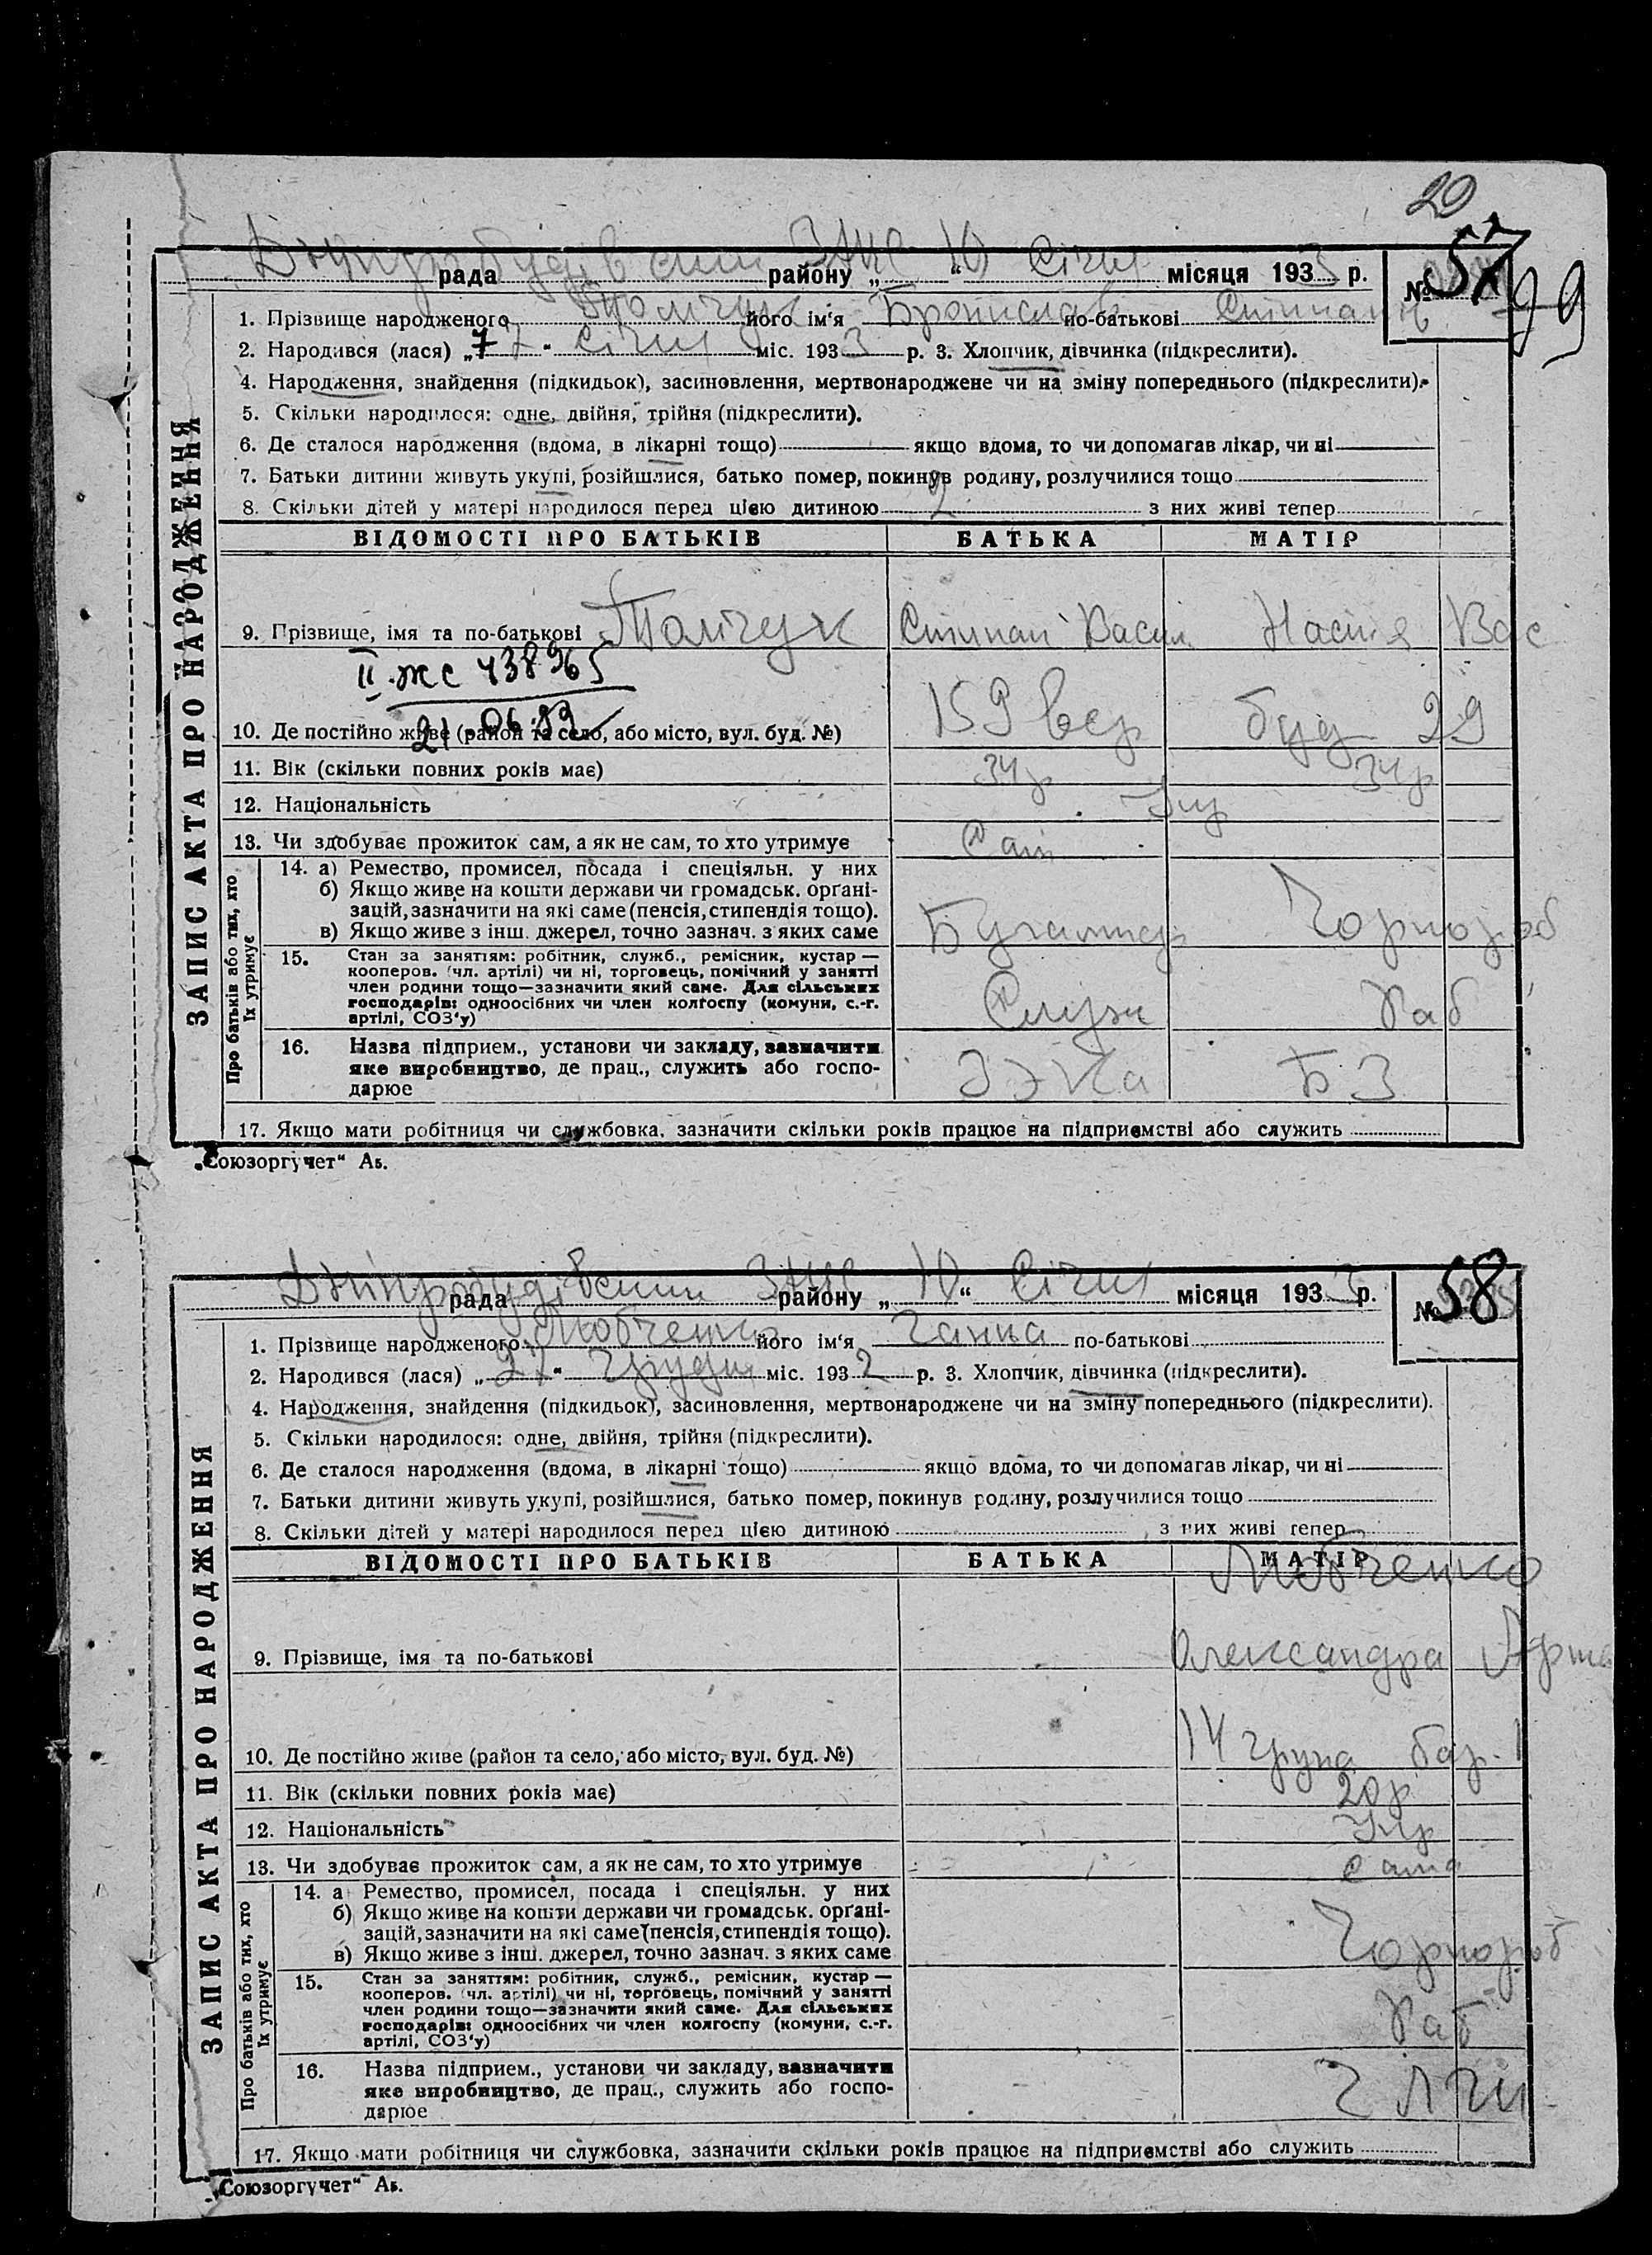 20
Дніпробудівський ЗАГС 10 Січня
рада району „ “ місяця 1933 р. № 57
99
1. Прізвище народженого Томчук його ім‘я Броніслав по-батькові Степанів
2. Народився (лася) „7“ Січня міс. 1933 р. 3. Хлопчик, дівчинка (підкреслити).
4. Народження, знайдення (підкидьок), засиновлення, мертвонароджене чи на зміну попереднього (підкреслити).
5. Скільки народилося: одне, двійня, трійня (підкреслити).
6. Де сталося народження (вдома, в лікарні тощо) якщо вдома, то чи допомагав лікар, чи ні
7. Батьки дитини живуть укупі, розійшлися, батько помер, покинув родину, розлучилися тощо
8. Скільки дітей у матері народилося перед цією дитиною 2 з них живі тепер
ЗАПИС АКТА ПРО НАРОДЖЕННЯ
ВІДОМОСТІ ПРО БАТЬКІВ БАТЬКА МАТІР
9. Прізвище, імя та по-батькові Томчук Степан Васил Настя Вас
II жс 438965
21.06.89
10. Де постійно живе (район та село, або місто, вул. буд. №) 159 вер буд 29
11. Вік (скільки повних років має) 34р 34р
12. Національність Укр
13. Чи здобуває прожиток сам, а як не сам, то хто утримує Сам
Про батьків або тих, хто їх утримує
14. а) Ремество, промисел, посада і спеціяльн. у них
б) Якщо живе на кошти держави чи громадськ. органі-
зацій, зазначити на які саме (пенсія, стипендія тощо).
в) Якщо живе з інш. джерел, точно зазнач. з яких саме Бугалтер Чорнороб
15. Стан за заняттям: робітник, служб., ремісник, кустар —
кооперов. (чл. артілі) чи ні, торговець, помічний у занятті
член родини тощо—зазначити який саме. Для сільських
господарів: одноосібних чи член колгоспу (комуни, с.-г.
артілі, СОЗ‘у) Служ Раб
16. Назва підприєм., установи чи закладу, зазначити
яке виробництво, де прац., служить або госпо-
дарює БЗ
17. Якщо мати робітниця чи службовка, зазначити скільки років працює на підприємстві або служить
„Союзоргучет“ Аб.
Дніпробудівський ЗАГС 10 Січня
рада району „ “ місяця 1933 р. № 58
1. Прізвище народженого Любченко його ім‘я Ганна по-батькові
2. Народився (лася) „27“ Грудня міс. 1932 р. 3. Хлопчик, дівчинка (підкреслити).
4. Народження, знайдення (підкидьок), засиновлення, мертвонароджене чи на зміну попереднього (підкреслити).
5. Скільки народилося: одне, двійня, трійня (підкреслити).
6. Де сталося народження (вдома, в лікарні тощо) якщо вдома, то чи допомагав лікар, чи ні
7. Батьки дитини живуть укупі, розійшлися, батько помер, покинув родину, розлучилися тощо
8. Скільки дітей у матері народилося перед цією дитиною з них живі тепер
ЗАПИС АКТА ПРО НАРОДЖЕННЯ
ВІДОМОСТІ ПРО БАТЬКІВ БАТЬКА МАТІР
Любченко
9. Прізвище, імя та по-батькові Олександра
10. Де постійно живе (район та село, або місто, вул. буд. №) 14 група бар. 1
11. Вік (скільки повних років має) 20р
12. Національність Укр
13. Чи здобуває прожиток сам, а як не сам, то хто утримує сама
Про батьків або тих, хто їх утримує
14. а) Ремество, промисел, посада і спеціяльн. у них
б) Якщо живе на кошти держави чи громадськ. органі-
зацій, зазначити на які саме (пенсія, стипендія тощо).
в) Якщо живе з інш. джерел, точно зазнач. з яких саме Чорнороб
15. Стан за заняттям: робітник, служб., ремісник, кустар —
кооперов. (чл. артілі) чи ні, торговець, помічний у занятті
член родини тощо—зазначити який саме. Для сільських
господарів: одноосібних чи член колгоспу (комуни, с.-г.
артілі, СОЗ‘у) Раб
16. Назва підприєм., установи чи закладу, зазначити
яке виробництво, де прац., служить або госпо-
дарює
17. Якщо мати робітниця чи службовка, зазначити скільки років працює на підприємстві або служить
„Союзоргучет“ Аб.